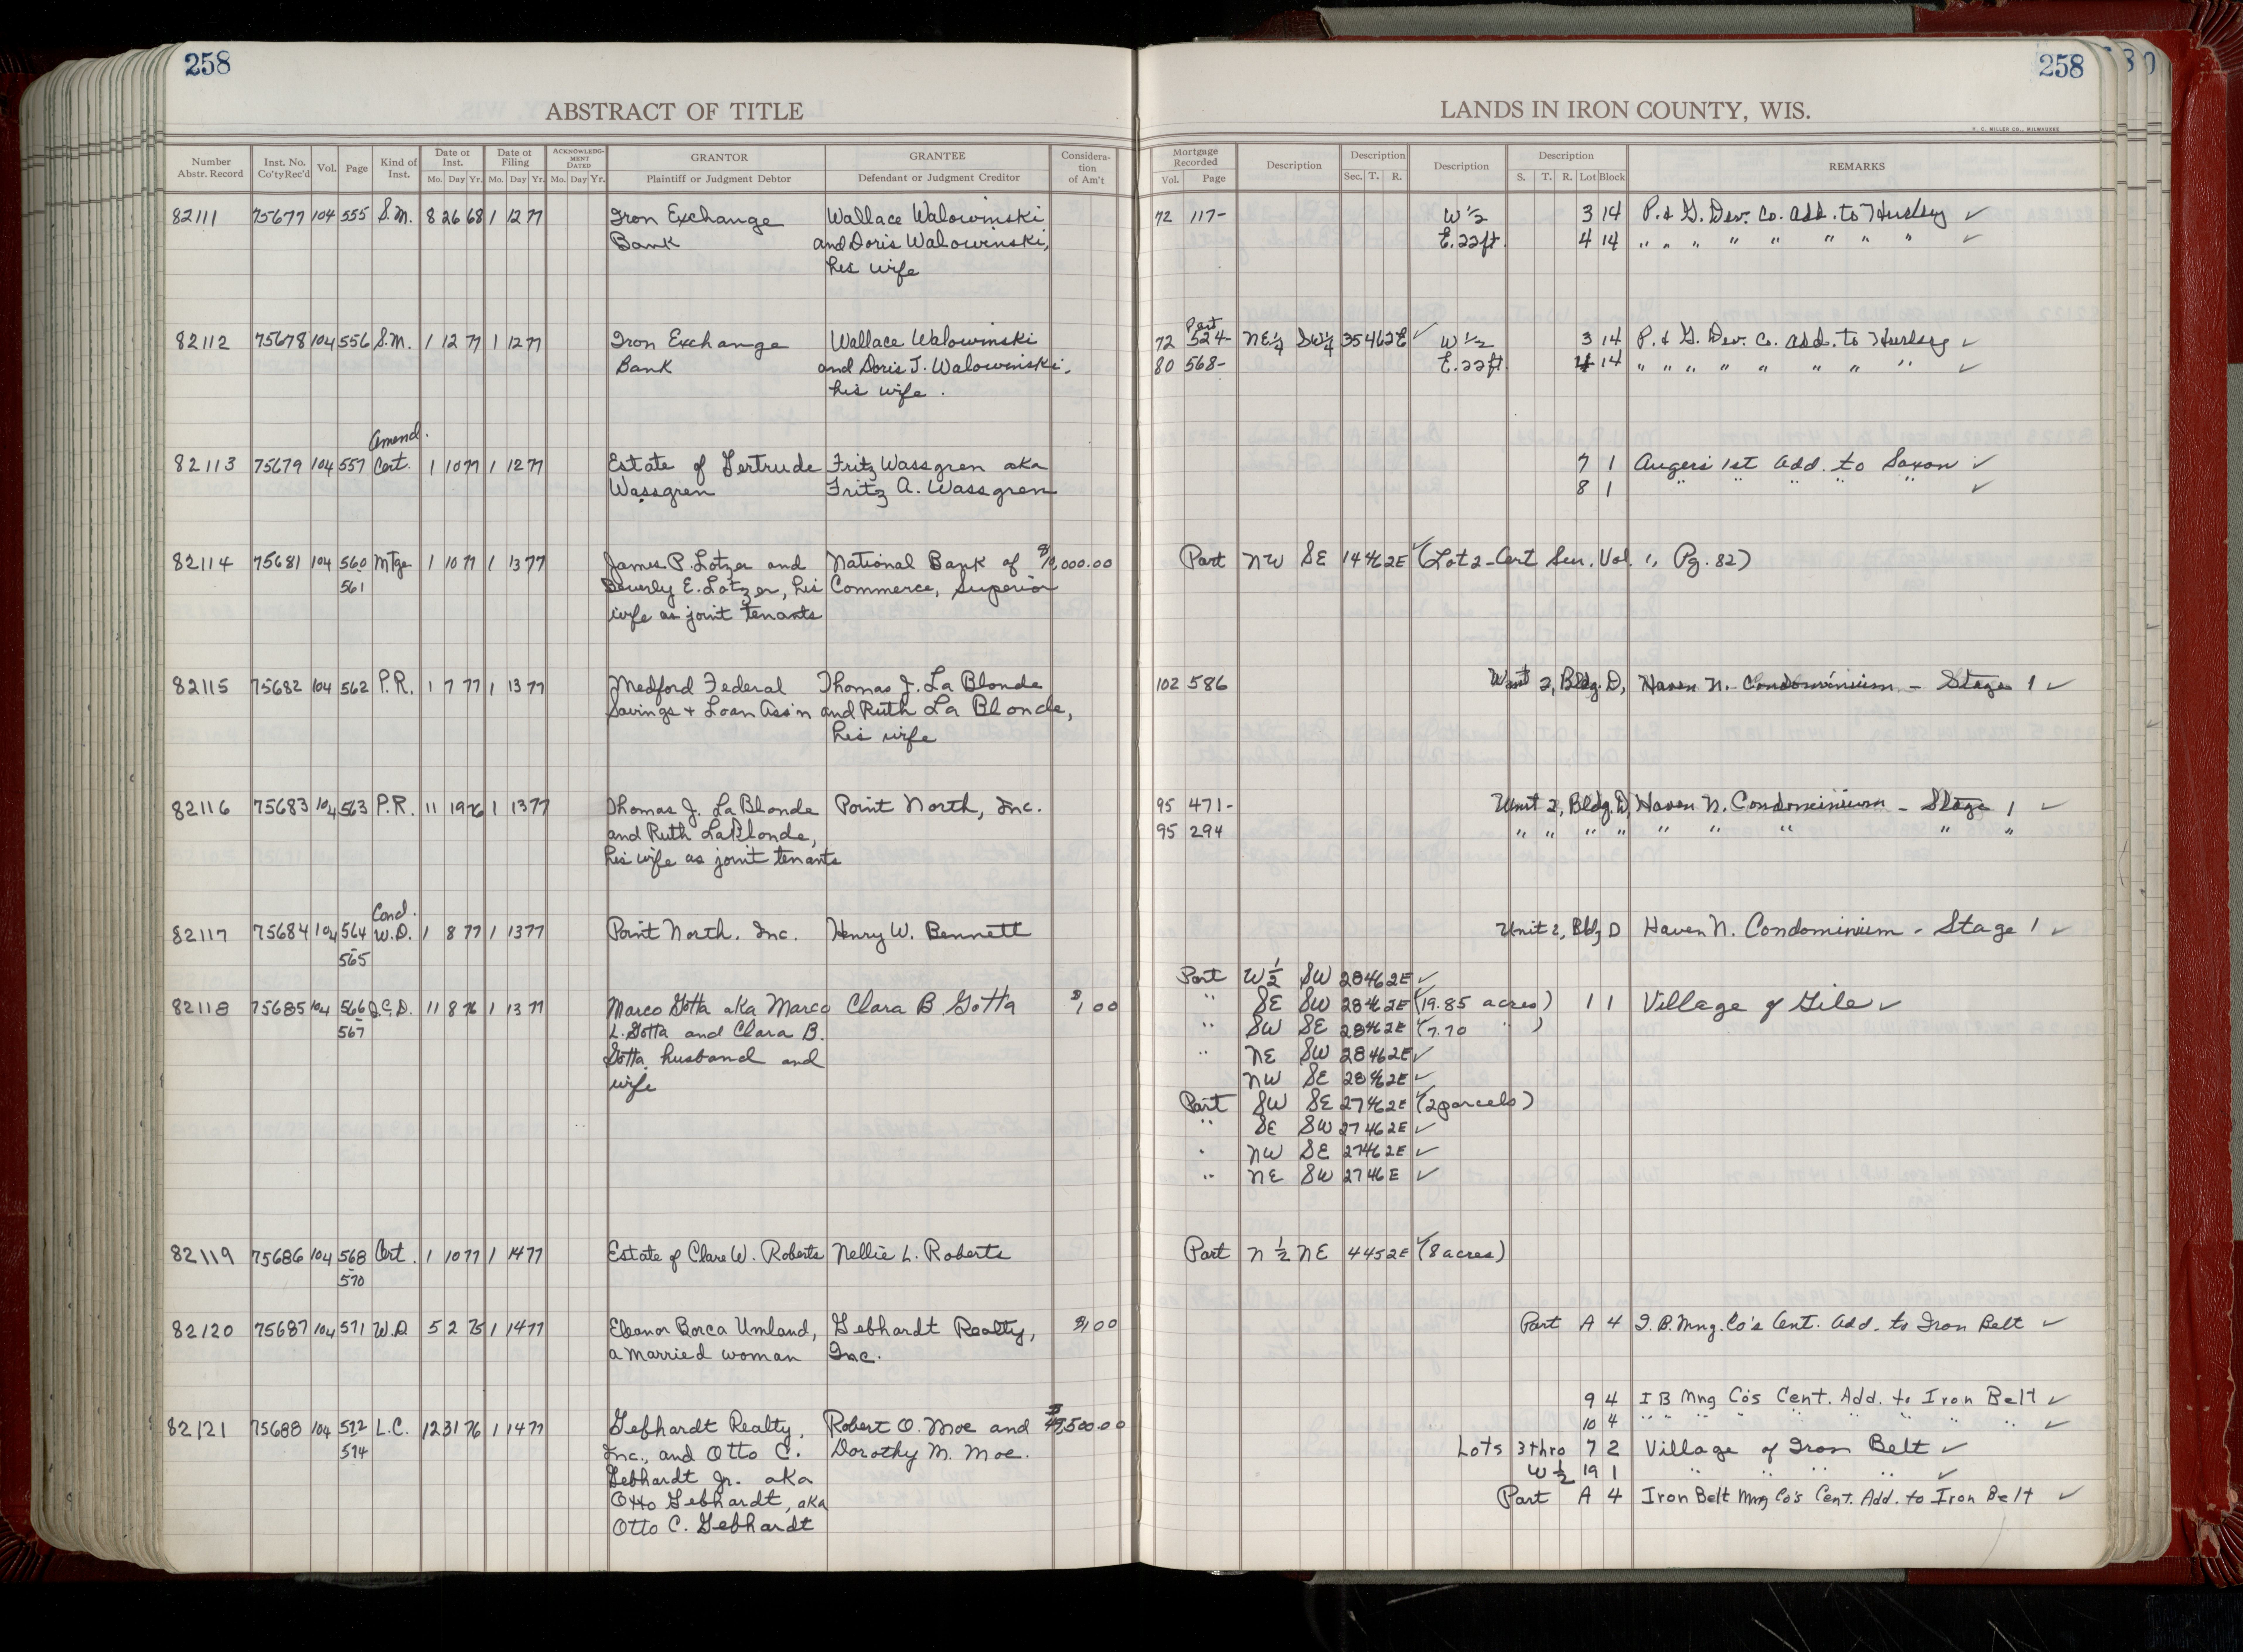 258
ABSTRACT OF TITLE
Number Abstr. Record Inst. No. Co'ty Rec'd Vol. Page Kind of Inst. Date of Inst. Mo. Day Yr. Date of Filing Mo. Day Yr. ACKNOWLEDGMENT DATED Mo. Day Yr. GRANTOR Plaintiff or Judgment Debtor GRANTEE Defendant or Judgment Creditor Consideration of Am't
82111 75677 104 555 S.M. 8 26 68 1 12 77 Iron Exchange Wallace Walowinski
Bank and Doris Walowinski,
his wife
82112 75678 104 556 S.M. 1 12 77 1 12 77 Iron Exchange Wallace Walowinski
Bank and Doris J. Walowinski,
his wife.
Amend.
82113 75679 104 557 Cert. 1 10 77 1 12 77 Estate of Gertrude Fritz Wassgren aka
Wassgren Fritz A. Wassgren
82114 75681 104 560 Mtge 1 10 77 1 13 77 James P. Lotzer and National Bank of $10,000.00
561 Beverly E. Lotzer, his Commerce, Superior
wife as joint tenants
82115 75682 104 562 P.R. 1 7 77 1 13 77 Medford Federal Thomas J. La Blonde
Savings + Loan Ass'n and Ruth La Blonde,
his wife
82116 75683 104 563 P.R. 11 19 76 1 13 77 Thomas J. LaBlonde Point North, Inc.
and Ruth LaBlonde,
his wife as joint tenants
Cond.
82117 75684 104 564 W.D. 1 8 77 1 13 77 Point North, Inc. Henry W. Bennett
565
82118 75685 104 566 Q.C.D. 11 8 76 1 13 77 Marco Gotta aka Marco Clara B. Gotta $1.00
567 L. Gotta and Clara B.
Gotta, husband and
wife
82119 75686 104 568 Cert. 1 10 77 1 14 77 Estate of Clare W. Roberts Nellie L. Roberts
570
82120 75687 104 571 W.D 5 2 75 1 14 77 Eleanor Borca Umland, Gebhardt Realty, $1.00
a married woman Inc.
82121 75688 104 572 L.C. 12 31 76 1 14 77 Gebhardt Realty, Robert O. Moe and $49,500.00
574 Inc., and Otto C. Dorothy M. Moe.
Gebhardt Jr. aka
Otto Gebhardt, aka
Otto C. Gebhardt
258
LANDS IN IRON COUNTY, WIS.
H. C. MILLER CO., MILWAUKEE
Mortgage Recorded Vol. Page Description Description Sec. T. R. Description Description S. T. R. Lot Block REMARKS
72 117- W 1/2 3 14 P. & G. Dev. Co. Add. to Hurley ✓
E. 22 ft. 4 14 " " " " " " " " ✓
Part
72 524- NE 1/4 SW 1/4 35 46 2E ✓ W 1/2 3 14 P. & G. Dev. Co. Add. to Hurley ✓
80 568- E. 22 ft. 4 14 " " " " " " " " ✓
7 1 Augers 1st Add. to Saxon ✓
8 1 " " " " " ✓
Part NW SE 14 46 2E ✓ (Lot 2-Cert Sur. Vol. 1, Pg. 82)
102 586 Unit 2, Bldg. D, Haven N. Condominium - Stage 1 ✓
95 471- Unit 2, Bldg. D, Haven N. Condominium - Stage 1 ✓
95 294 " " " " " " " " "
Unit 2, Bldg D Haven N. Condominium - Stage 1 ✓
Part W 1/2 SW 28 46 2E ✓
" SE SW 28 46 2E ✓ (19.85 acres) 1 1 Village of Gile ✓
" SW SE 28 46 2E ✓ (7.70 " )
" NE SW 28 46 2E ✓
NW SE 28 46 2E ✓
Part SW SE 27 46 2E ✓ (2 parcels)
" SE SW 27 46 2E ✓
" NW SE 27 46 2E ✓
" NE SW 27 46 E ✓
Part N 1/2 NE 4 45 2E ✓ (8 acres)
Part A 4 I. B. Mng. Co's Cent. Add. to Iron Belt ✓
9 4 I B Mng Co's Cent. Add. to Iron Belt ✓
10 4 " " " " " " " " ✓
Lots 3 thro 7 2 Village of Iron Belt ✓
W 1/2 19 1 " " " " ✓
Part A 4 Iron Belt Mng Co's Cent. Add. to Iron Belt ✓